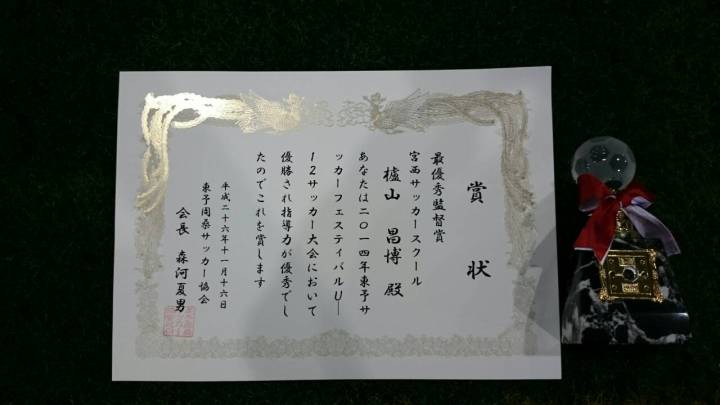 賞状
最優秀監督賞
宮西サッカースクール
櫨山 昌博 殿
あなたは二〇一四年東予サ
ッカーフェスティバルU―
12サッカー大会において
優勝され指導力が優秀でし
たのでこれを賞します
平成二十六年十一月十六日
東予周桑サッカー協会
会長 森河夏男